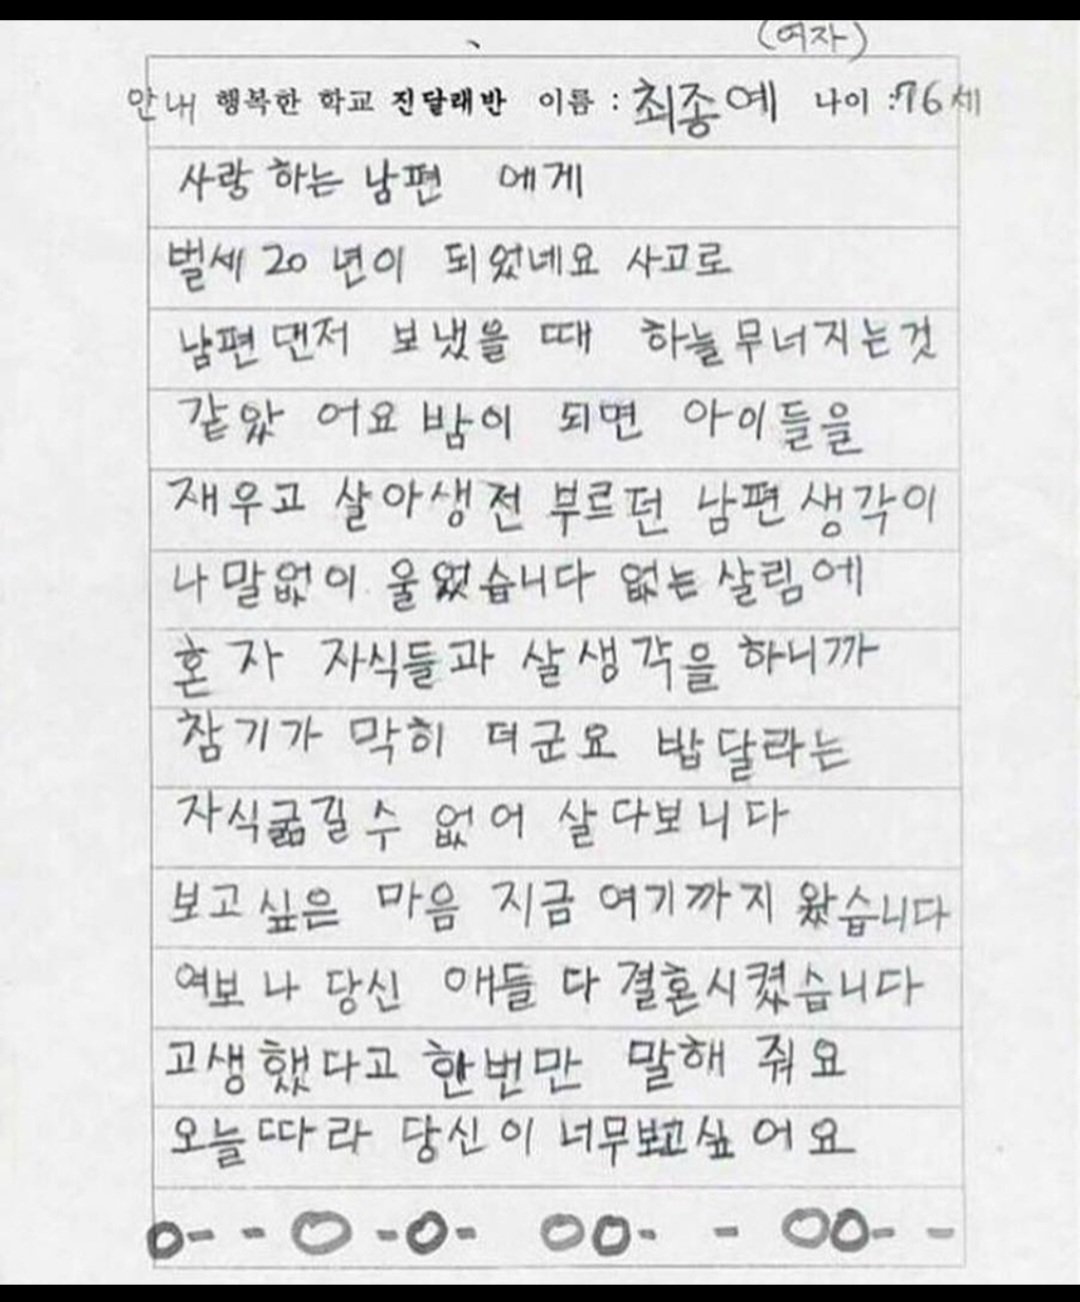 (여자)
안내 행복한 학교 진달래반 이름 : 최종예 나이 :76세
사랑 하는 남편 에게
벌세 20 년이 되었네요 사고로
남편먼저 보냈을 때 하늘무너지는것
같았 어요 밤이 되면 아이들을
재우고 살아생전 부르던 남편생각이
나말없이 울었습니다 없는살림에
혼자 자식들과 살생각을 하니까
참기가 막히 더군요 밥달라는
자식굶길수 없어 살다보니다
보고싶은 마음 지금 여기까지 왔습니다
여보 나 당신 애들 다 결혼시켰습니다
고생했다고 한번만 말해 줘요
오늘따라 당신이 너무보고싶 어요